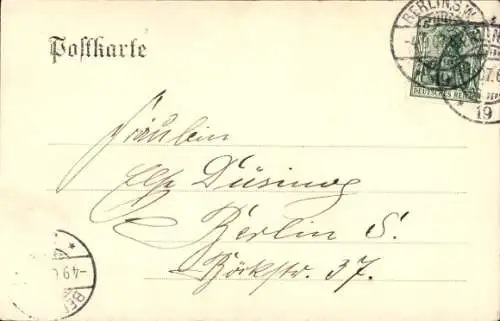 Postkarte
BERLIN, S.W.
19
DEUTSCHES REICH
Fräulein
Else Düsing
Berlin S.
Böckstr. 37.